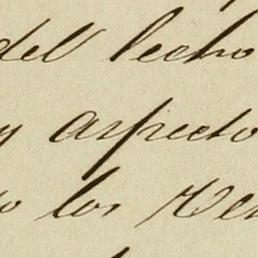 del lecho
y aspecto
los